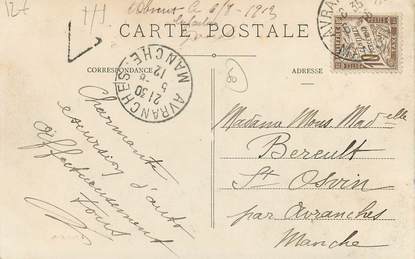 CARTE POSTALE
CORRESPONDANCE
ADRESSE
AVRANCHES
21 30
5 - 8
12
MANCHE
10
Charmante
excursion d'auto
Affectueusement
tous
Madame Mons. Mad elle
Bereult
St Osvin
par Avranches
Manche